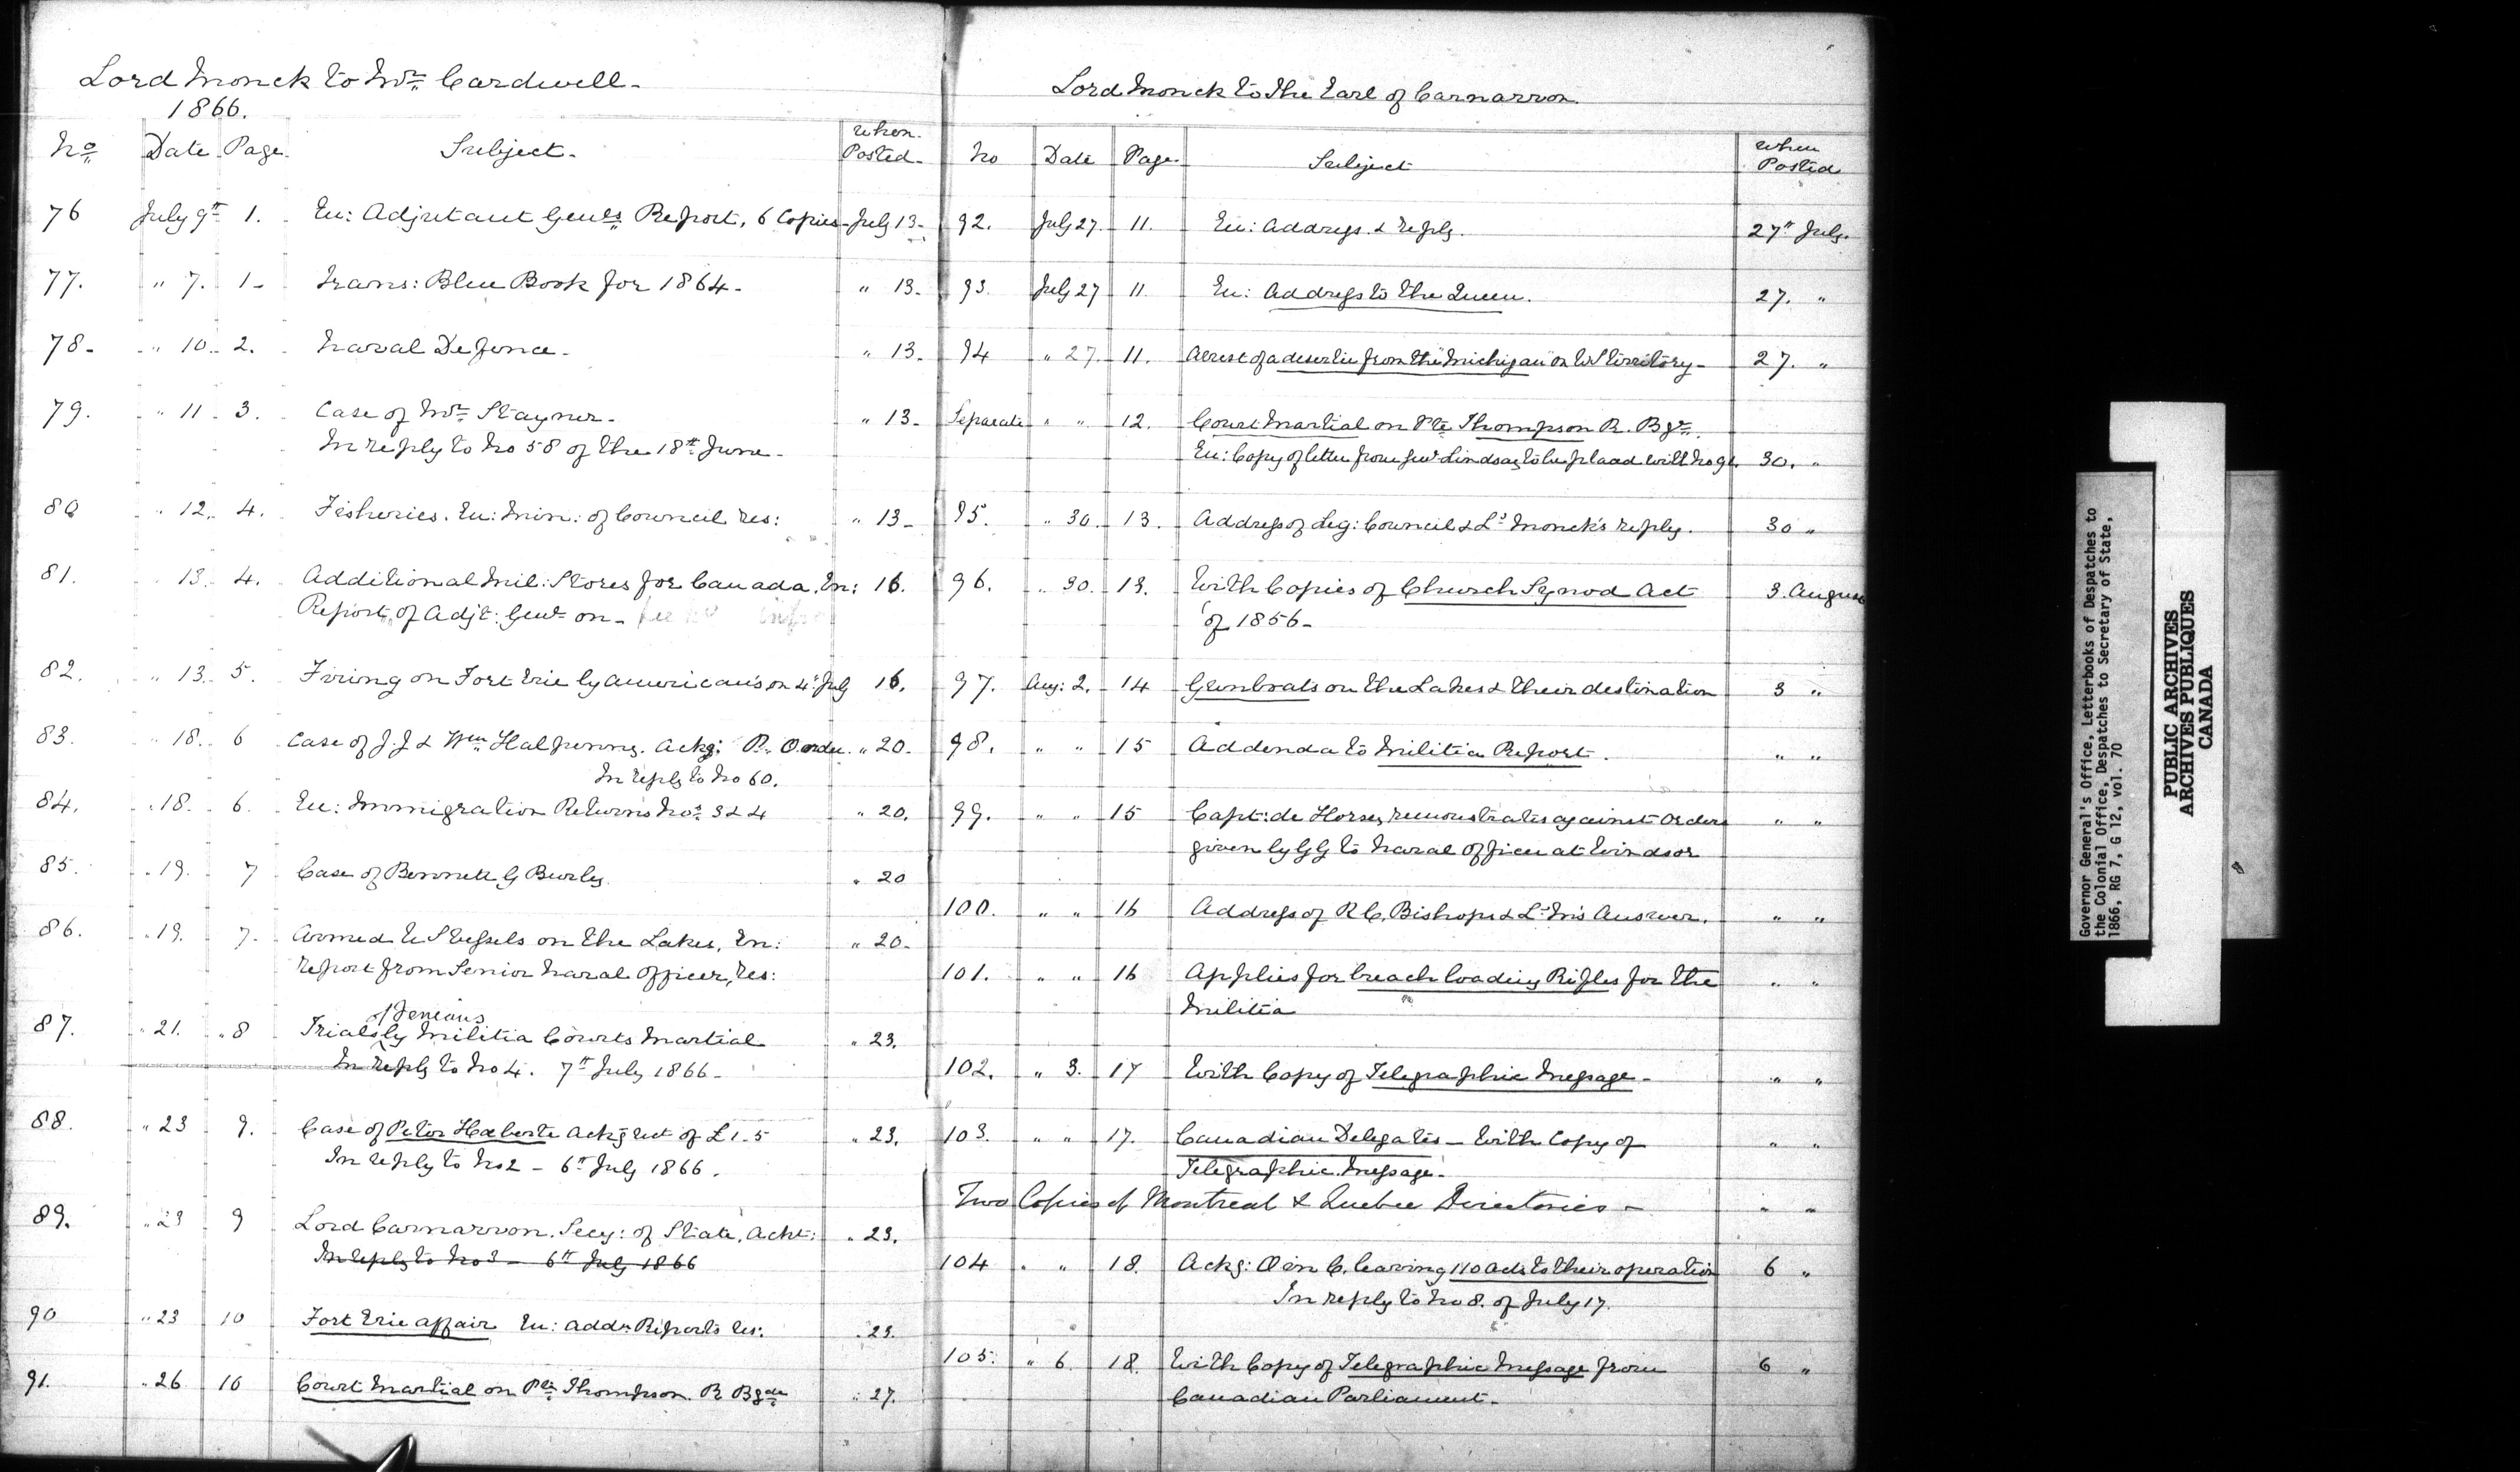 Lord Monck to Mr. Cardwell.
1866.
No. Date Page. Subject. When Posted.
76 July 9th 1. En: Adjutant Genls. Report, 6 Copies July 13.
77. " 7. 1. Trans: Blue Book for 1864. " 13.
78. " 10. 2. Naval Defence. " 13.
79. " 11. 3. Case of Mr. Stayner. " 13.
In reply to No 58 of the 18th June.
80 " 12. 4. Fisheries. En: Min: of Council res: " 13.
81. " 13. 4. Additional Mil: Stores for Canada. En: 16.
Report of Adjt: Genl. on.
82. " 13. 5. Firing on Fort Erie by Americans on 4th July 16.
83. " 18. 6 Case of J.J & Wm. Halpenny. Ackg: P. Order. " 20.
In reply to No 60.
84. " 18. 6. En: Immigration Returns Nos. 3 & 4 " 20.
85. " 19. 7 Case of Bennett G Burley. " 20
86. " 19. 7. Armed U S Vessels on the Lakes, En: " 20.
report from Senior Naval Officer, res:
87. " 21. " 8 Trials of Fenians by Militia Courts Martial " 23.
In reply to No 4. 7th July 1866.
88. " 23 9. Case of Peter Haberte ackg rect of £1.5 " 23.
In reply to No 2 - 6th July 1866.
89. " 23 9 Lord Carnarvon. Secy: of State, Ackt: " 23.
In reply to No 3 - 6th July 1866
90 " 23 10 Fort Erie affair En: addl. Reports res: " 23.
91. " 26 10 Court Martial on Pte. Thompson R Bgde " 27.
Lord Monck to the Earl of Carnarvon.
No Date Page. Subject When Posted
92. July 27. 11. En: Address & reply. 27th July.
93. July 27 11. En: Address to the Queen. 27. "
94 " 27. 11. Arrest of a deserter from the "Michigan" on U S territory. 27. "
Separate " " 12. Court Martial on Pte Thompson R. Bge.
En: Copy of letter from Genl. Lindsay to be placed with No 91. 30. "
95. " 30. 13. Address of Leg: Council & Ld. Monck's reply. 30 "
96. " 30. 13. With Copies of Church Synod Act 3. August
of 1856.
97. Aug: 2. 14 Gunboats on the Lakes & their destination 3 "
98. " " 15 Addenda to Militia Report. " "
99. " " 15 Capt: de Horsey remonstrates against orders " "
given by G G to Naval Officer at Windsor
100. " " 16 Address of R C. Bishops & Ld. M's Answer. " "
101. " " 16 Applies for breach loading Rifles for the " "
Militia
102. " 3. 17 With Copy of Telegraphic Message. " "
103. " " 17. Canadian Delegates - With Copy of " "
Telegraphic Message.
Two Copies of Montreal & Quebec Directories - " "
104 " " 18. Ackg: O in C. leaving 110 acts to their operation 6 "
In reply to No 8. of July 17.
105. " 6. 18. With Copy of Telegraphic Message from 6 "
Canadian Parliament.
Governor General's Office, Letterbooks of Despatches to
the Colonial Office, Despatches to Secretary of State,
1866, RG 7, G 12, vol. 70
PUBLIC ARCHIVES
ARCHIVES PUBLIQUES
CANADA